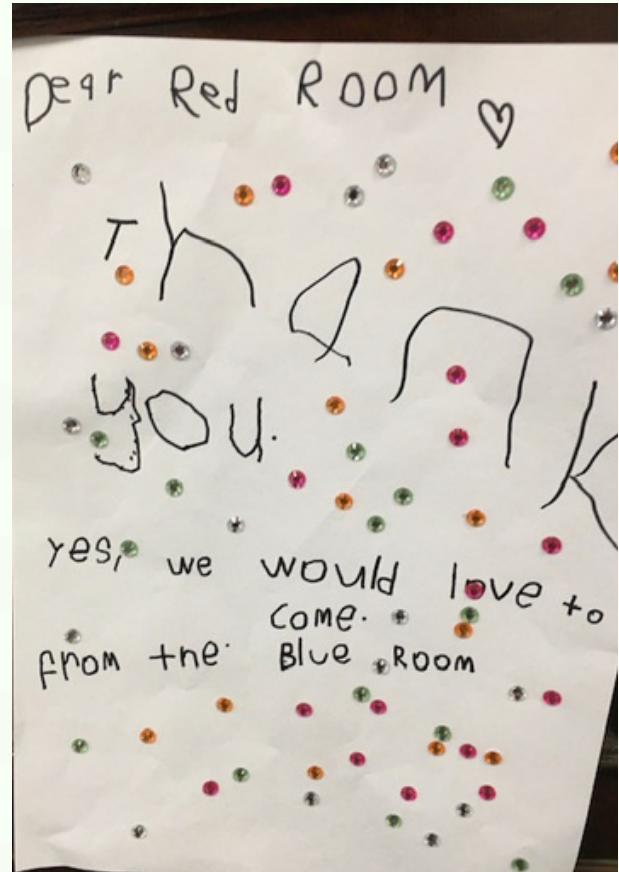 Dear Red ROOM
Thank
you.
yes, we would love to
come.
from the Blue ROOM